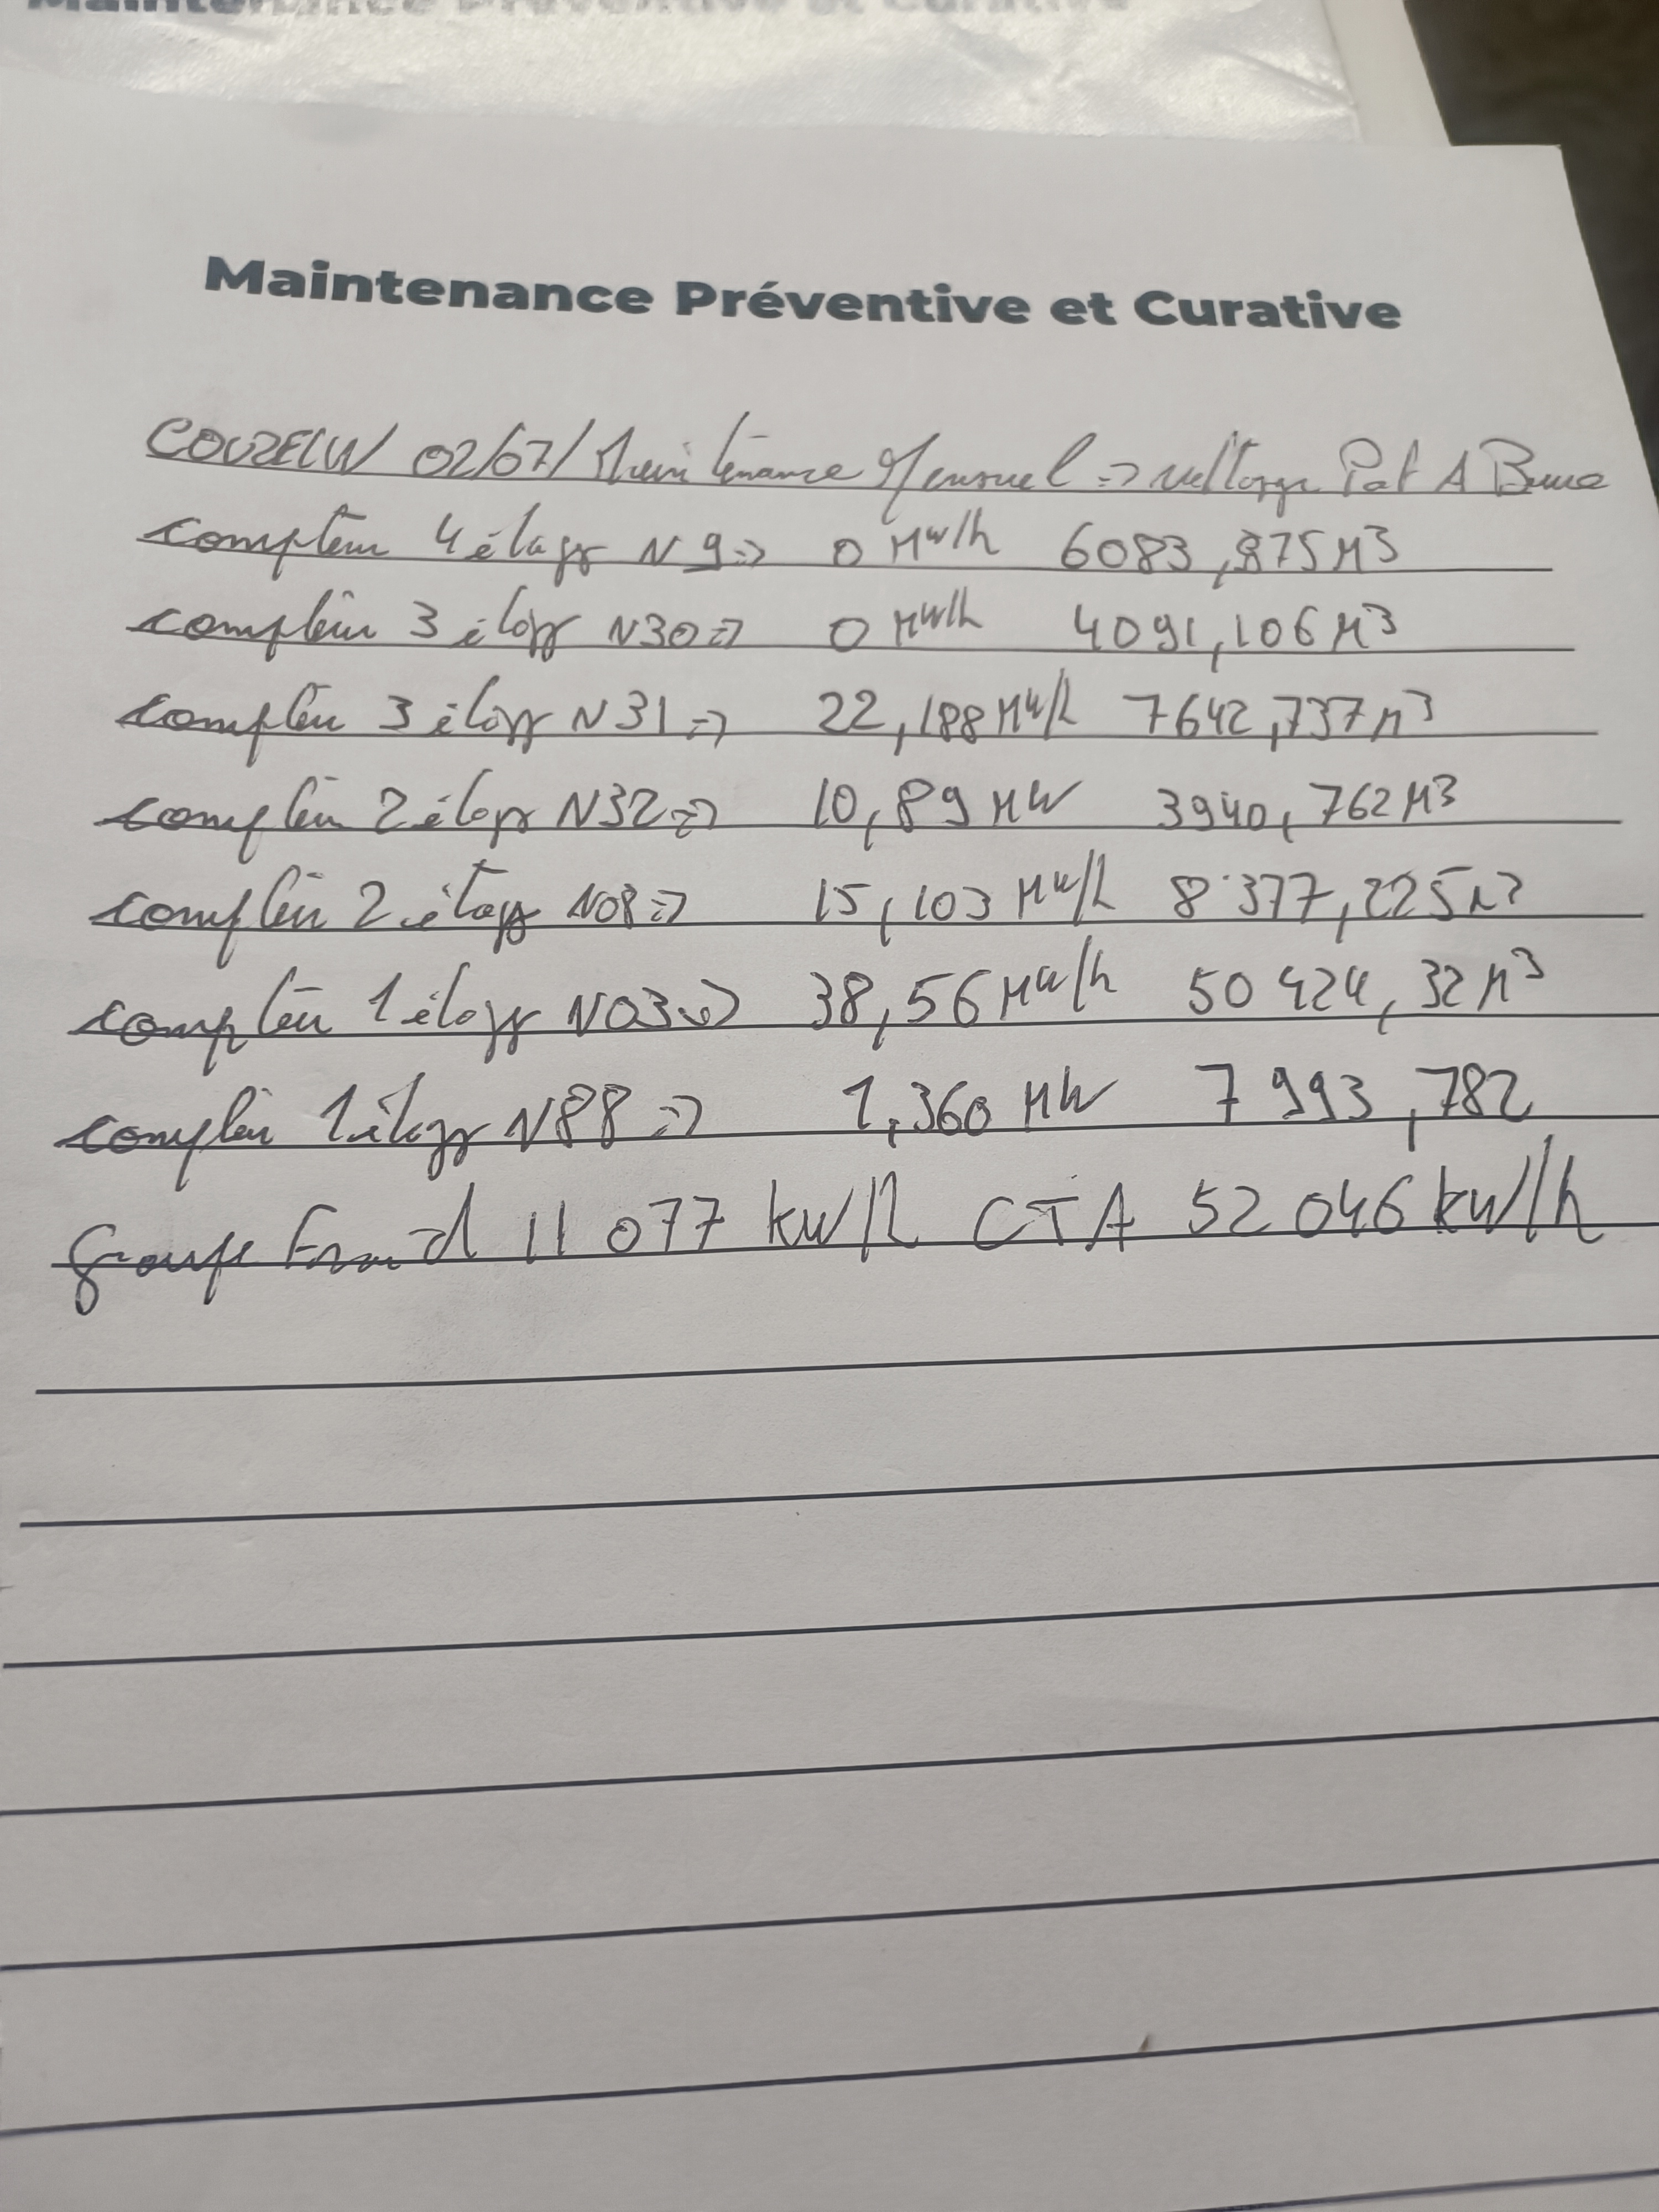 Maintenance Préventive et Curative
Maintenance Préventive et Curative
02/07/ Maintenance Mensuel => nettoyage Pot A Boue
compteur 4 étage N 9 => 0 MW/h 6083,875 M3
compteur 3 étage N30 => 0 MW/h 4091,106 M3
compteur 3 étage N31 => 22,188 MW/h 7642,737 M3
compteur 2 étage N32 => 10,89 MW 3940,762 M3
compteur 2 étage N08 => 15,103 MW/h 8377,225 M3
compteur 1 étage N03 => 38,56 MW/h 50 424,32 M3
compteur 1 étage N88 => 1,360 MW 7 993,782
Groupe Froid 11 077 kW/h CTA 52 046 kW/h